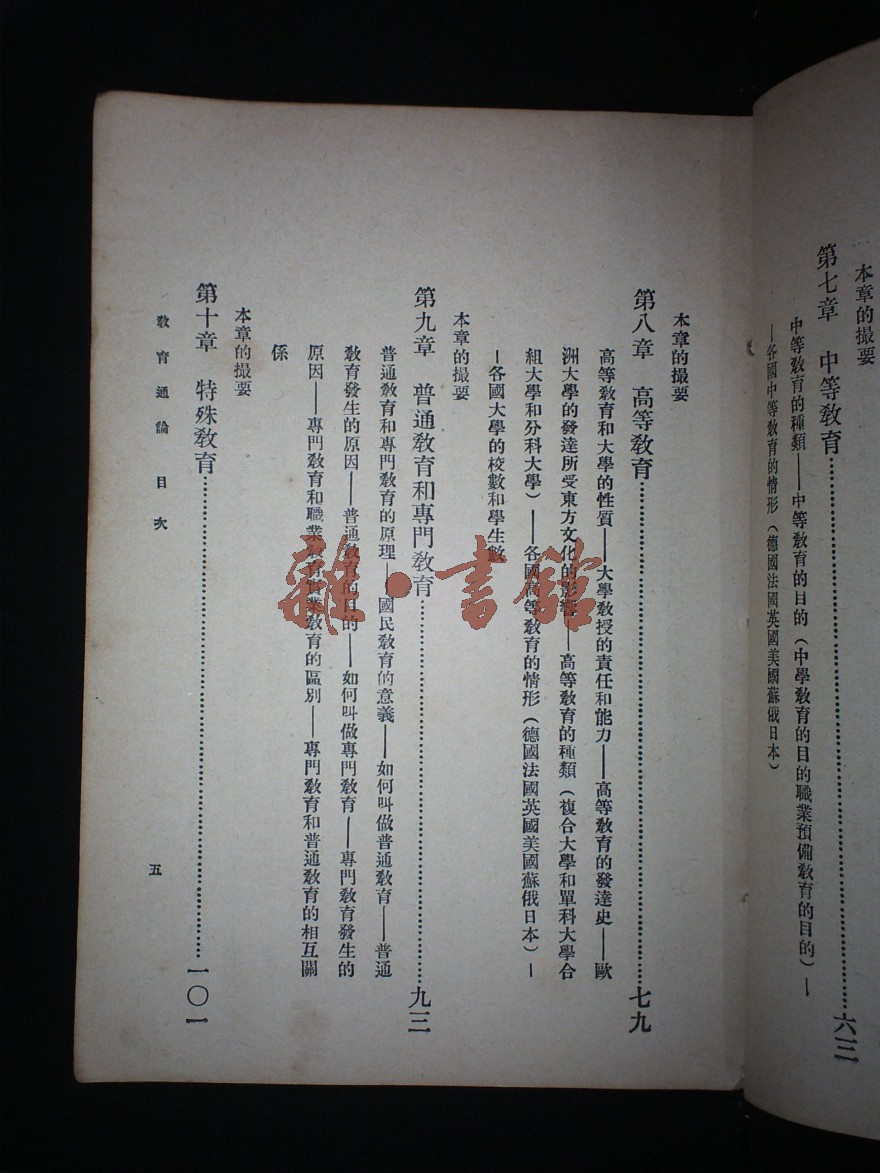 本章的撮要
第七章 中等教育……六三
中等教育的種類——中等教育的目的（中學教育的目的職業預備教育的目的）—
—各國中等教育的情形（德國法國英國美國蘇俄日本）
本章的撮要
第八章 高等教育……七九
高等教育和大學的性質——大學教授的責任和能力——高等教育的發達史——歐
洲大學的發達所受東方文化的影響——高等教育的種類（複合大學和單科大學合
組大學和分科大學）——各國高等教育的情形（德國法國英國美國蘇俄日本）—
—各國大學的校數和學生數
本章的撮要
第九章 普通教育和專門教育……九三
普通教育和專門教育的原理——國民教育的意義——如何叫做普通教育——普通
教育發生的原因——普通教育的目的——如何叫做專門教育——專門教育發生的
原因——專門教育和職業教育實業教育的區別——專門教育和普通教育的相互關
係
本章的撮要
第十章 特殊教育……一〇一
教育通論 目次
五
雜·書館